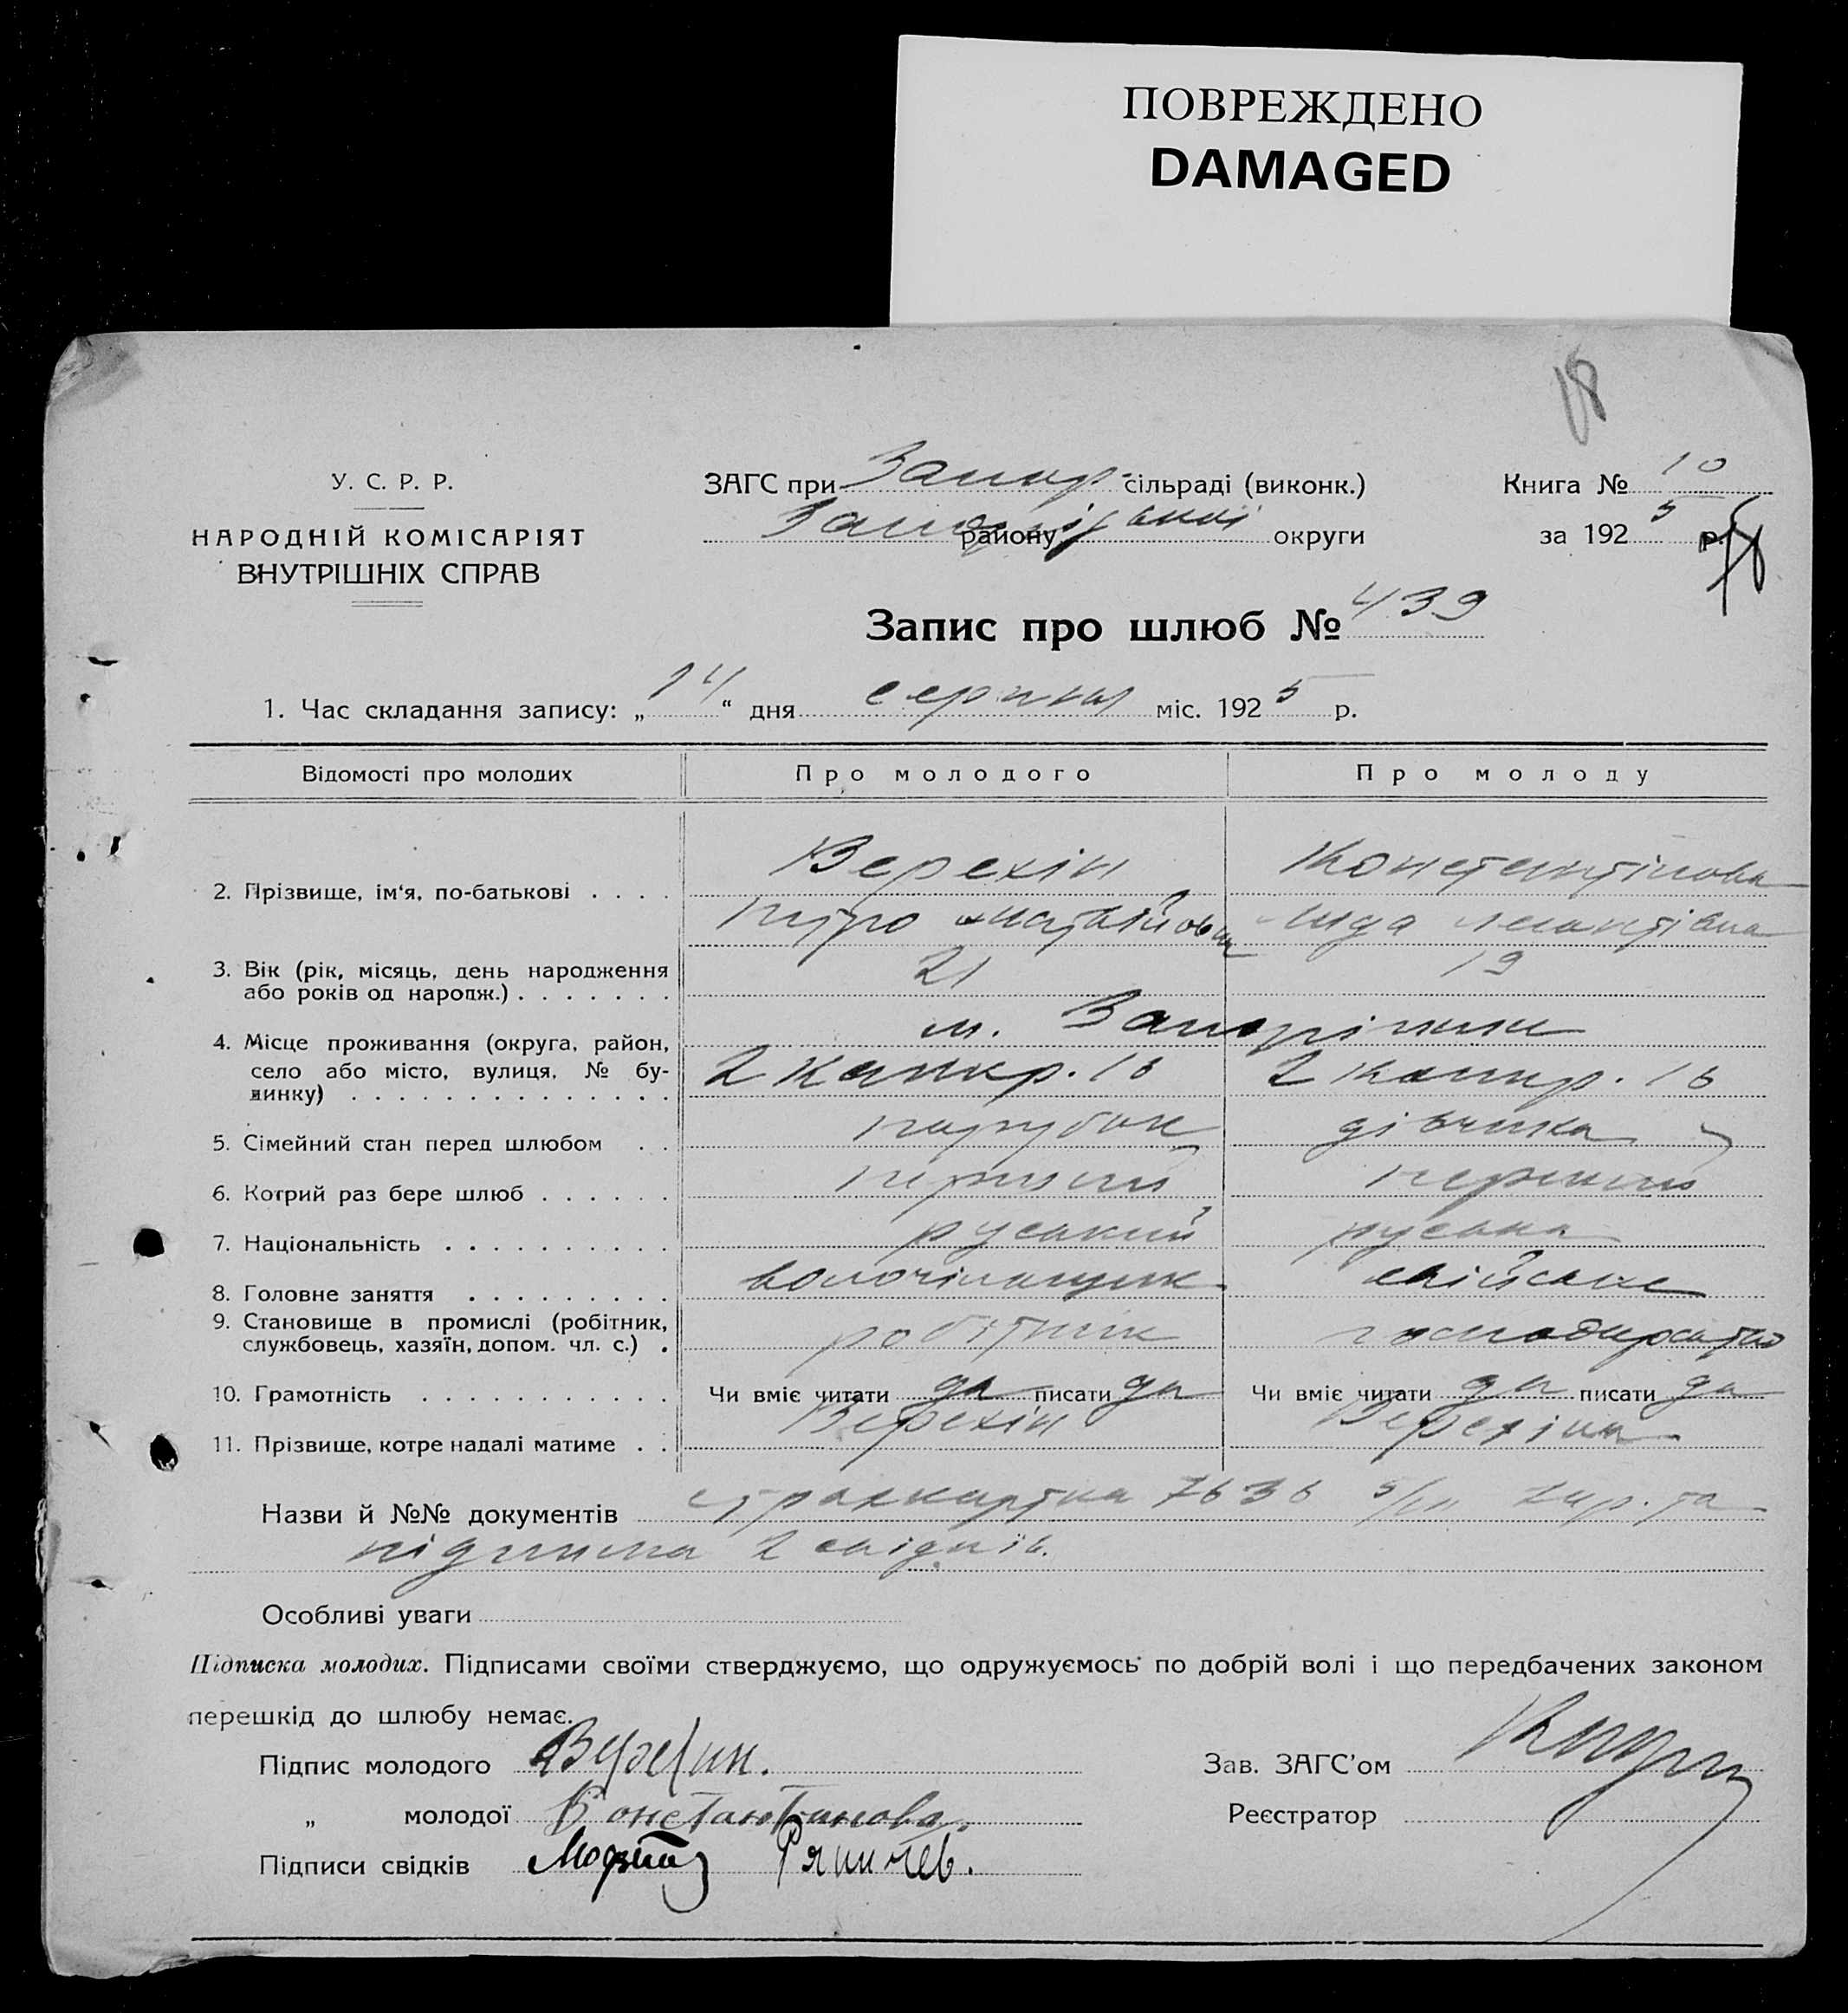 ПОВРЕЖДЕНО
DAMAGED
18
У. С. Р. Р.
НАРОДНІЙ КОМІСАРІЯТ
ВНУТРІШНІХ СПРАВ
ЗАГС при Запор сільраді (виконк.)
району округи
Книга № 10
за 1925 р.
Запис про шлюб № 439
1. Час складання запису: „14“ дня серпня міс. 1925 р.
Відомості про молодих Про молодого Про молоду
2. Прізвище, ім‘я, по-батькові . . . . Верехін Константінова
Петро Матвійович Лида Леонтівна
3. Вік (рік, місяць, день народження 21 19
або років од народж.) . . . . . . .
м. Запоріжжя
4. Місце проживання (округа, район,
село або місто, вулиця, № бу- 2 16 2 16
динку) . . . . . . . . . . . . . .
5. Сімейний стан перед шлюбом . . парубок дівчина
6. Котрий раз бере шлюб . . . . . . перший перший
7. Національність . . . . . . . . . . руський руська
8. Головне заняття . . . . . . . . .
9. Становище в промислі (робітник, робітник господарство
службовець, хазяїн, допом. чл. с.) .
10. Грамотність . . . . . . . . . . . Чи вміє читати да писати да Чи вміє читати да писати да
11. Прізвище, котре надалі матиме . . Верехін Верехіна
Назви й №№ документів страхкартка 7636 та
підписка 2 свідків.
Особливі уваги
Підписка молодих. Підписами своїми стверджуємо, що одружуємось по добрій волі і що передбачених законом
перешкід до шлюбу немає.
Підпис молодого Верехин.
„ молодої Константинова.
Підписи свідків
Зав. ЗАГС'ом
Реєстратор